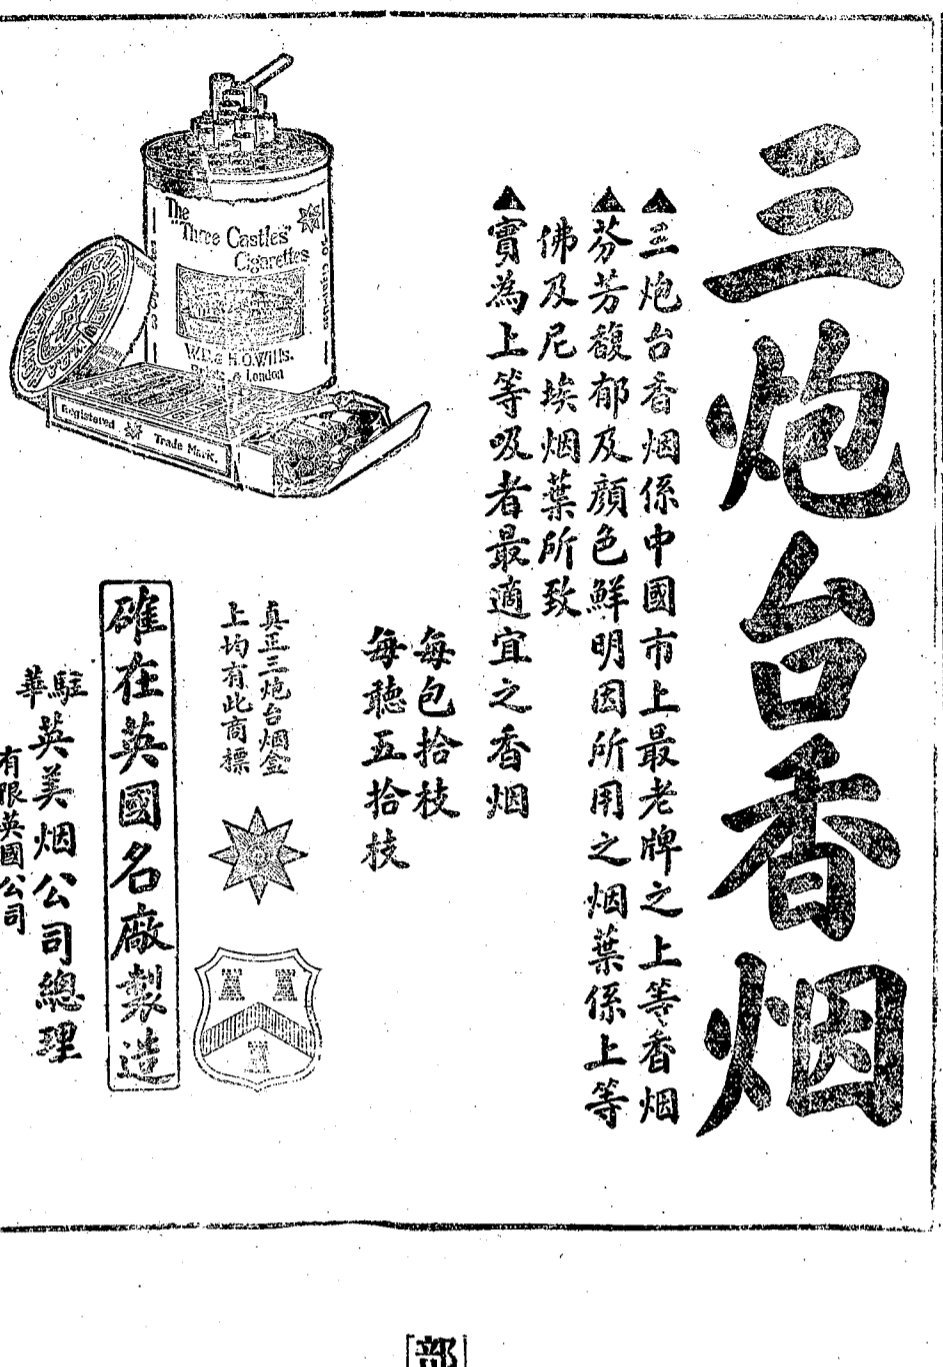 三炮台香烟
▲三炮台香烟係中國市上最老牌之上等香烟
▲芬芳馥郁及顏色鮮明因所用之烟葉係上等
佛及尼埃烟葉所致
▲實為上等吸者最適宜之香烟
每包拾枝
每聽五拾枝
The
"Three Castles"
Cigarettes
W.D.& H.O.Wills.
Bristol & London
Registered Trade Mark.
真正三炮台烟盒
上均有此商標
確在英國名廠製造
駐華英美烟公司總理
有限英國公司
[部]